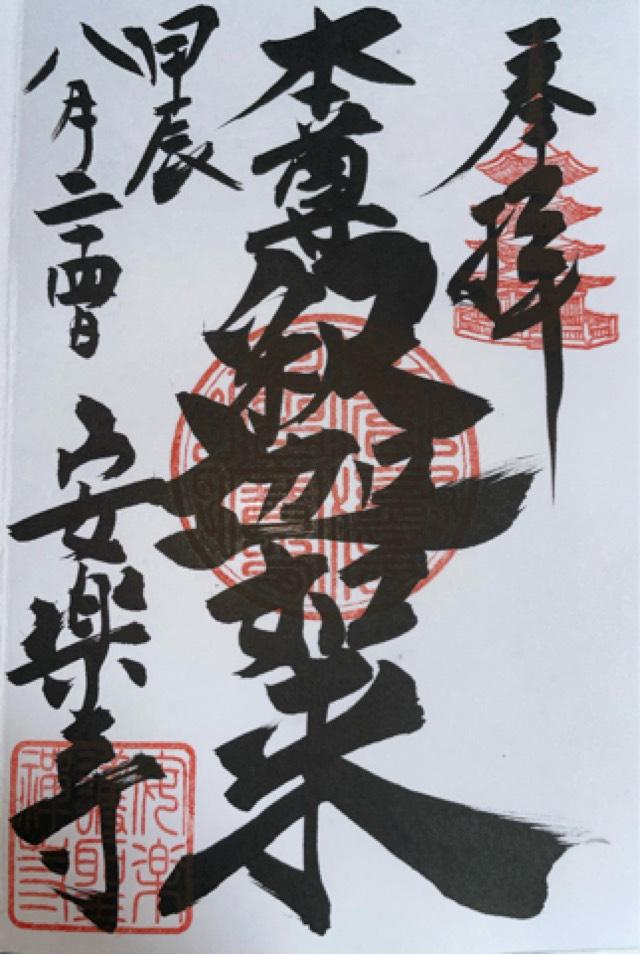 奉拝
本尊釈迦如来
甲辰
八月二十四日
安楽寺